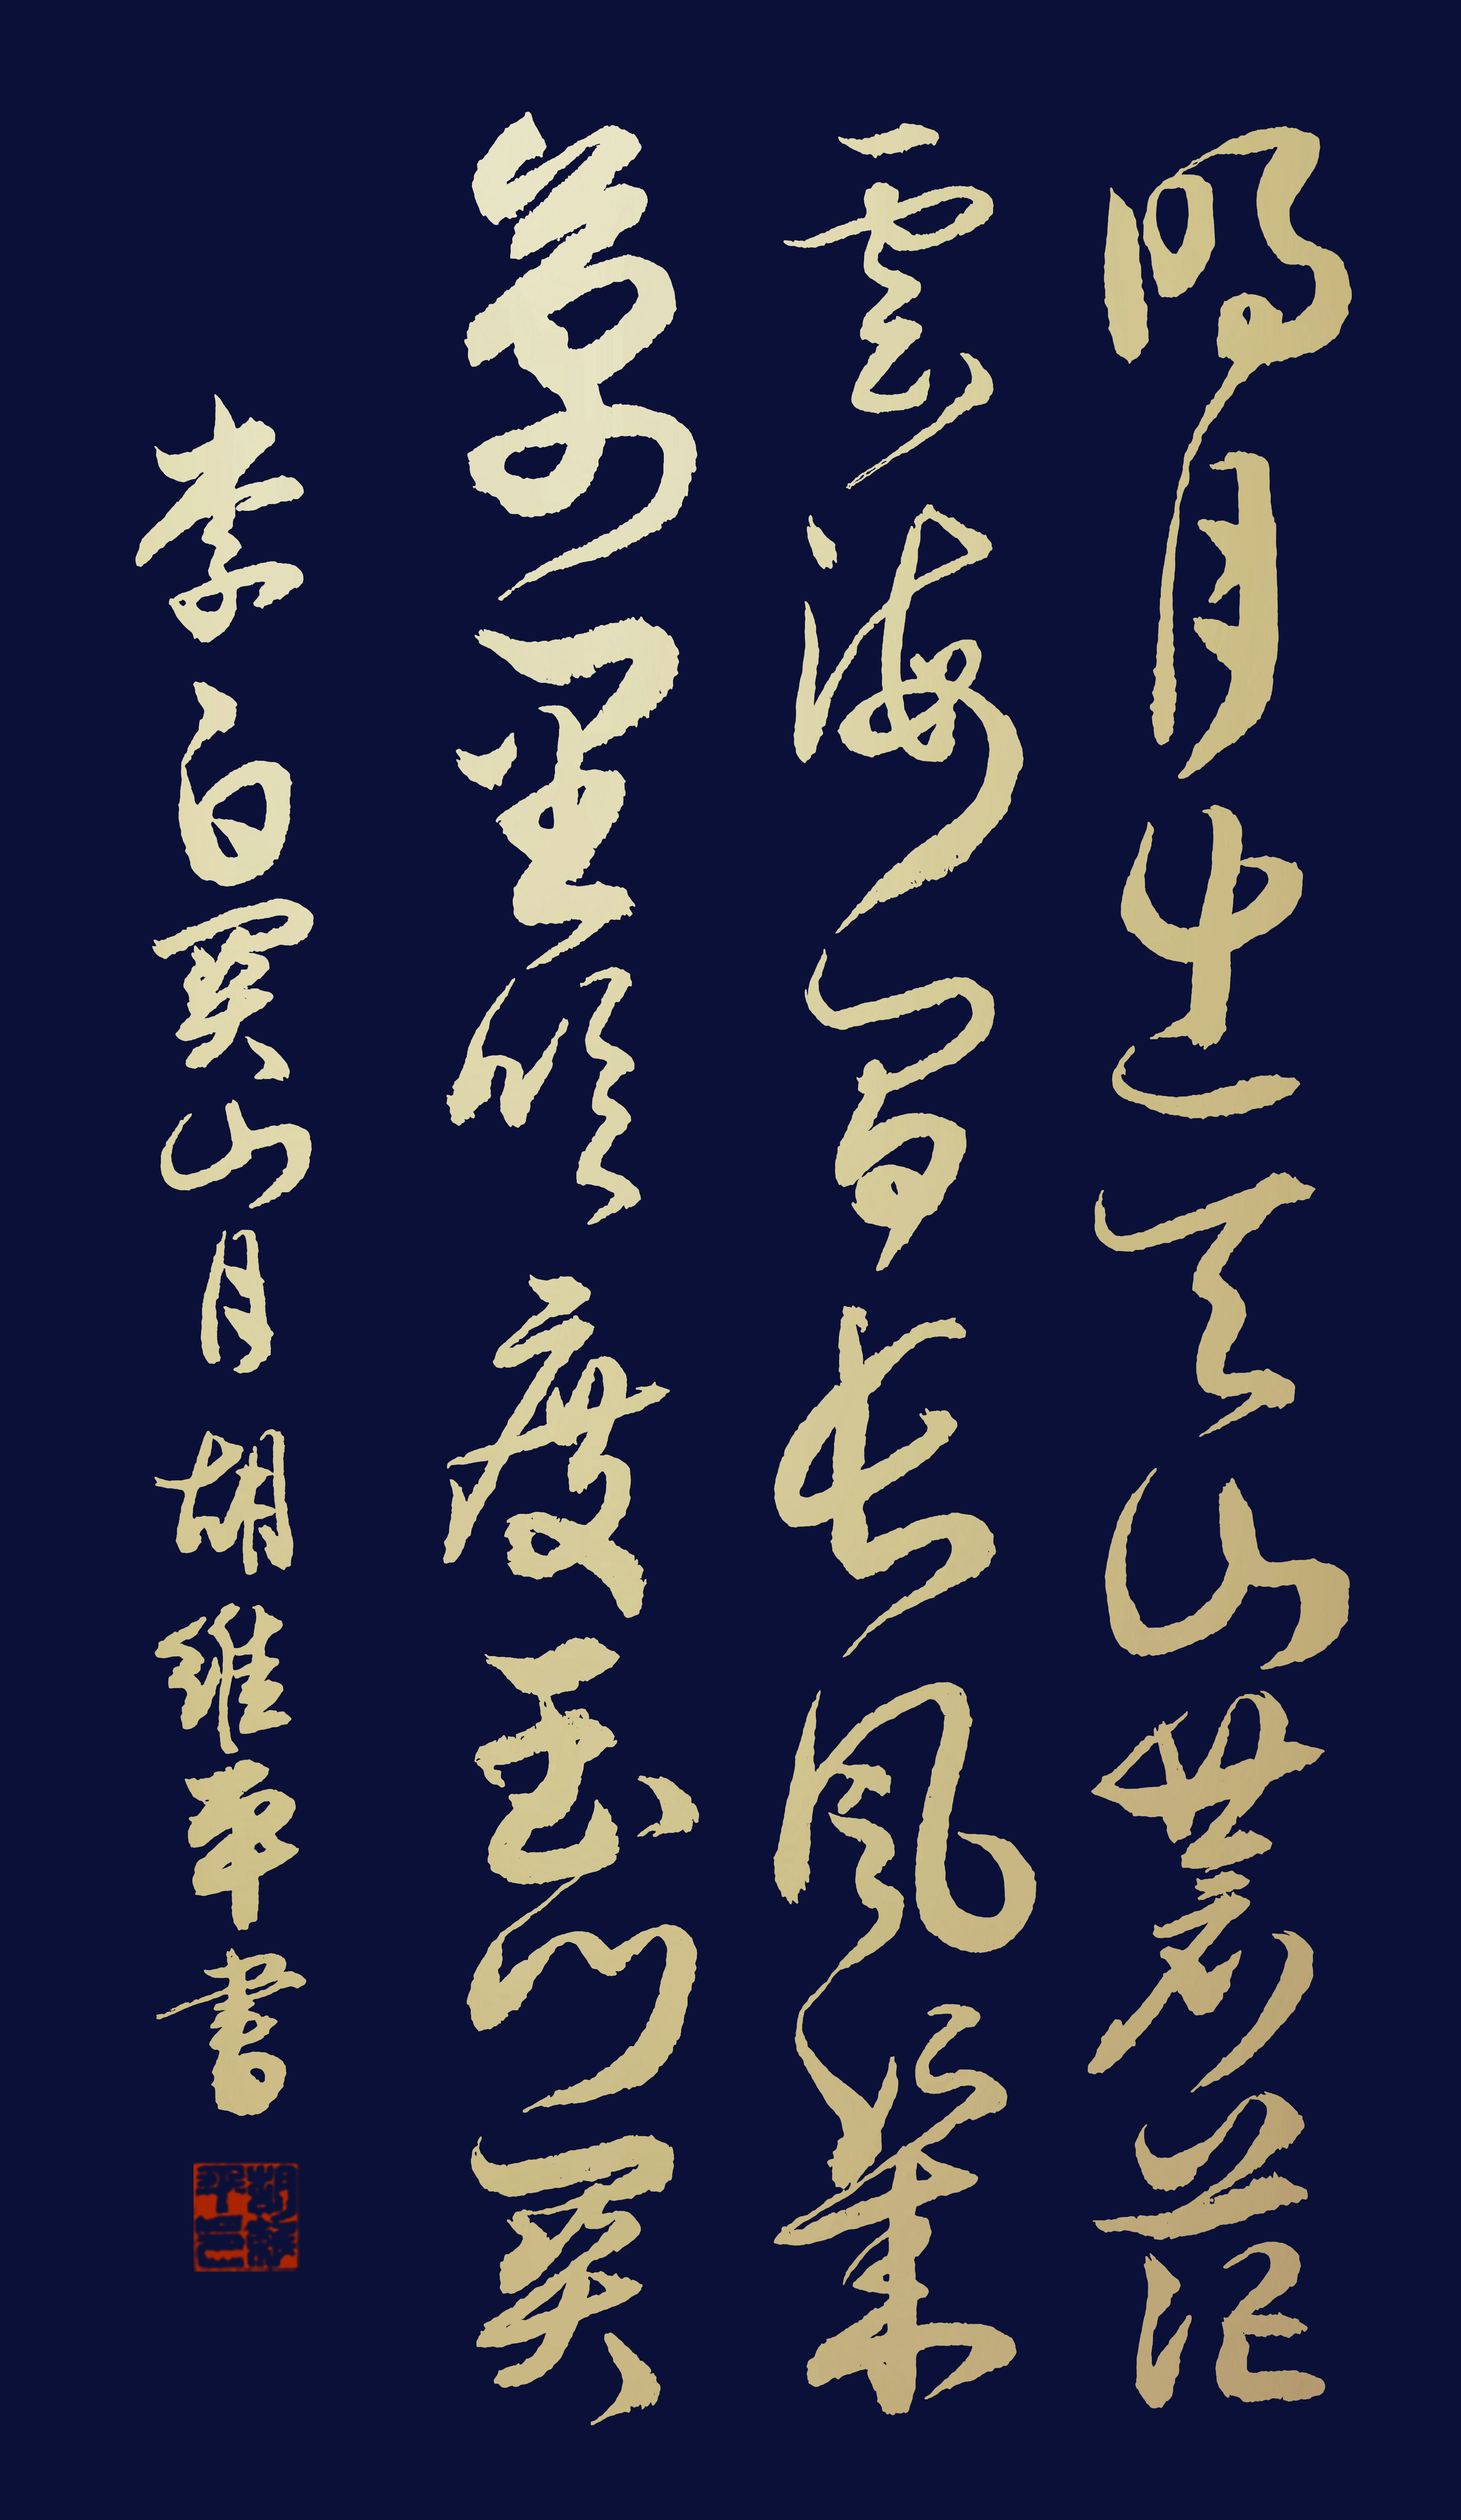 明月出天山蒼茫
雲海間長風幾
萬里吹度玉門關
李白關山月 胡維書